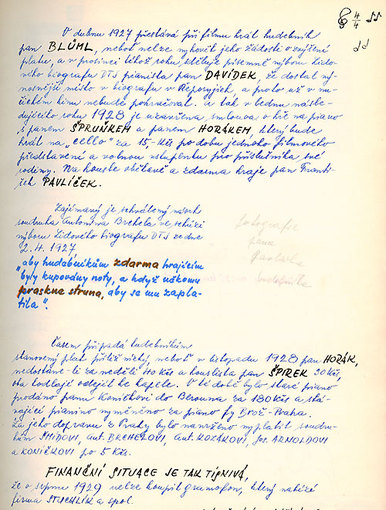 4 4 55
V dubnu 1927 přestává při filmu hrát hudebník
pan BLÜML, neboť nelze vyhovět jeho žádosti o zvýšení
platu, a v prosinci téhož roku sděluje písemně výboru lido-
vého biografu DTJ pianista pan DAVÍDEK, že dostal vý-
nosnější místo v biografu v Řeporyjích, a proto už v mí-
stním kinu nebude pohrávat. A tak v lednu násle-
dujícího roku 1928 je uzavřena smlouva o hře na piano
s panem ŠPRUŇKEM a panem HORÁKEM, který bude
hrát na „cello" za 15.- Kčs po dobu jednoho filmového
představení a volnou vstupenku pro příslušníka své
rodiny. Na housle občasně a zdarma hraje pan Franti-
šek PAVLÍČEK.
Zajímavý je schválený návrh
soudruha Antonína Brehela ve schůzi
výboru lidového biografu DTJ ze dne
2. 4. 1927
„aby hudebníkům zdarma hrajícím
byly kupovány noty, a když někomu
praskne struna, aby se mu zapla-
tila".
fotografie
pana
Pavlíčka
hudebníka
Časem připadá hudebníkům
stanovený plat příliš nízký, neboť v listopadu 1928 pan HORÁK,
nedostane-li za neděli 40 Kčs a houslista pan ŠPIREK 30 Kčs,
odejít ke kapele. V té době bylo staré piano
prodáno panu Koníčkovi do Berouna za 180 Kčs a stá-
vající pianino vyměněno za piano fy Brož - Praha.
Za jeho dopravu z Prahy bylo navrženo vyplatit soudru-
hům ŠMÍDOVI, Ant. BREHELOVI, Ant. KOZÁKOVI, Jos. ARNOLDOVI
a KONÍČKOVI po 5 Kčs.
FINANČNÍ SITUACE JE TAK TÍSNIVÁ,
že v srpnu 1929 nelze koupit gramofon, který nabízí
firma STUCHLÍK a spol.